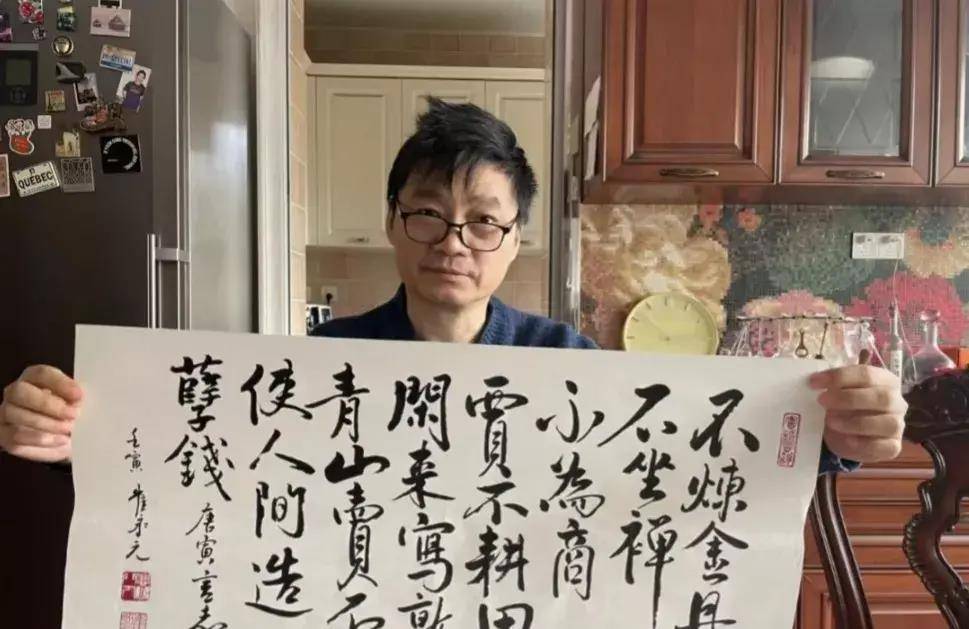 不煉金丹
不坐禪
不為商
賈不耕田
閑来寫就
青山賣不
使人間造
孽錢 唐寅言志
壬寅 崔永元
QUEBEC